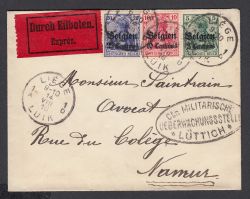 Durch Eilboten.
Exprès.
Belgien
Belgien
Belgien
LIÉGE
LUIK
Monsieur Saintrain
Avocat
Rue du Collège
Namur
MILITARISCHE
UEBERWACHUNGSSTELLE
LÜTTICH